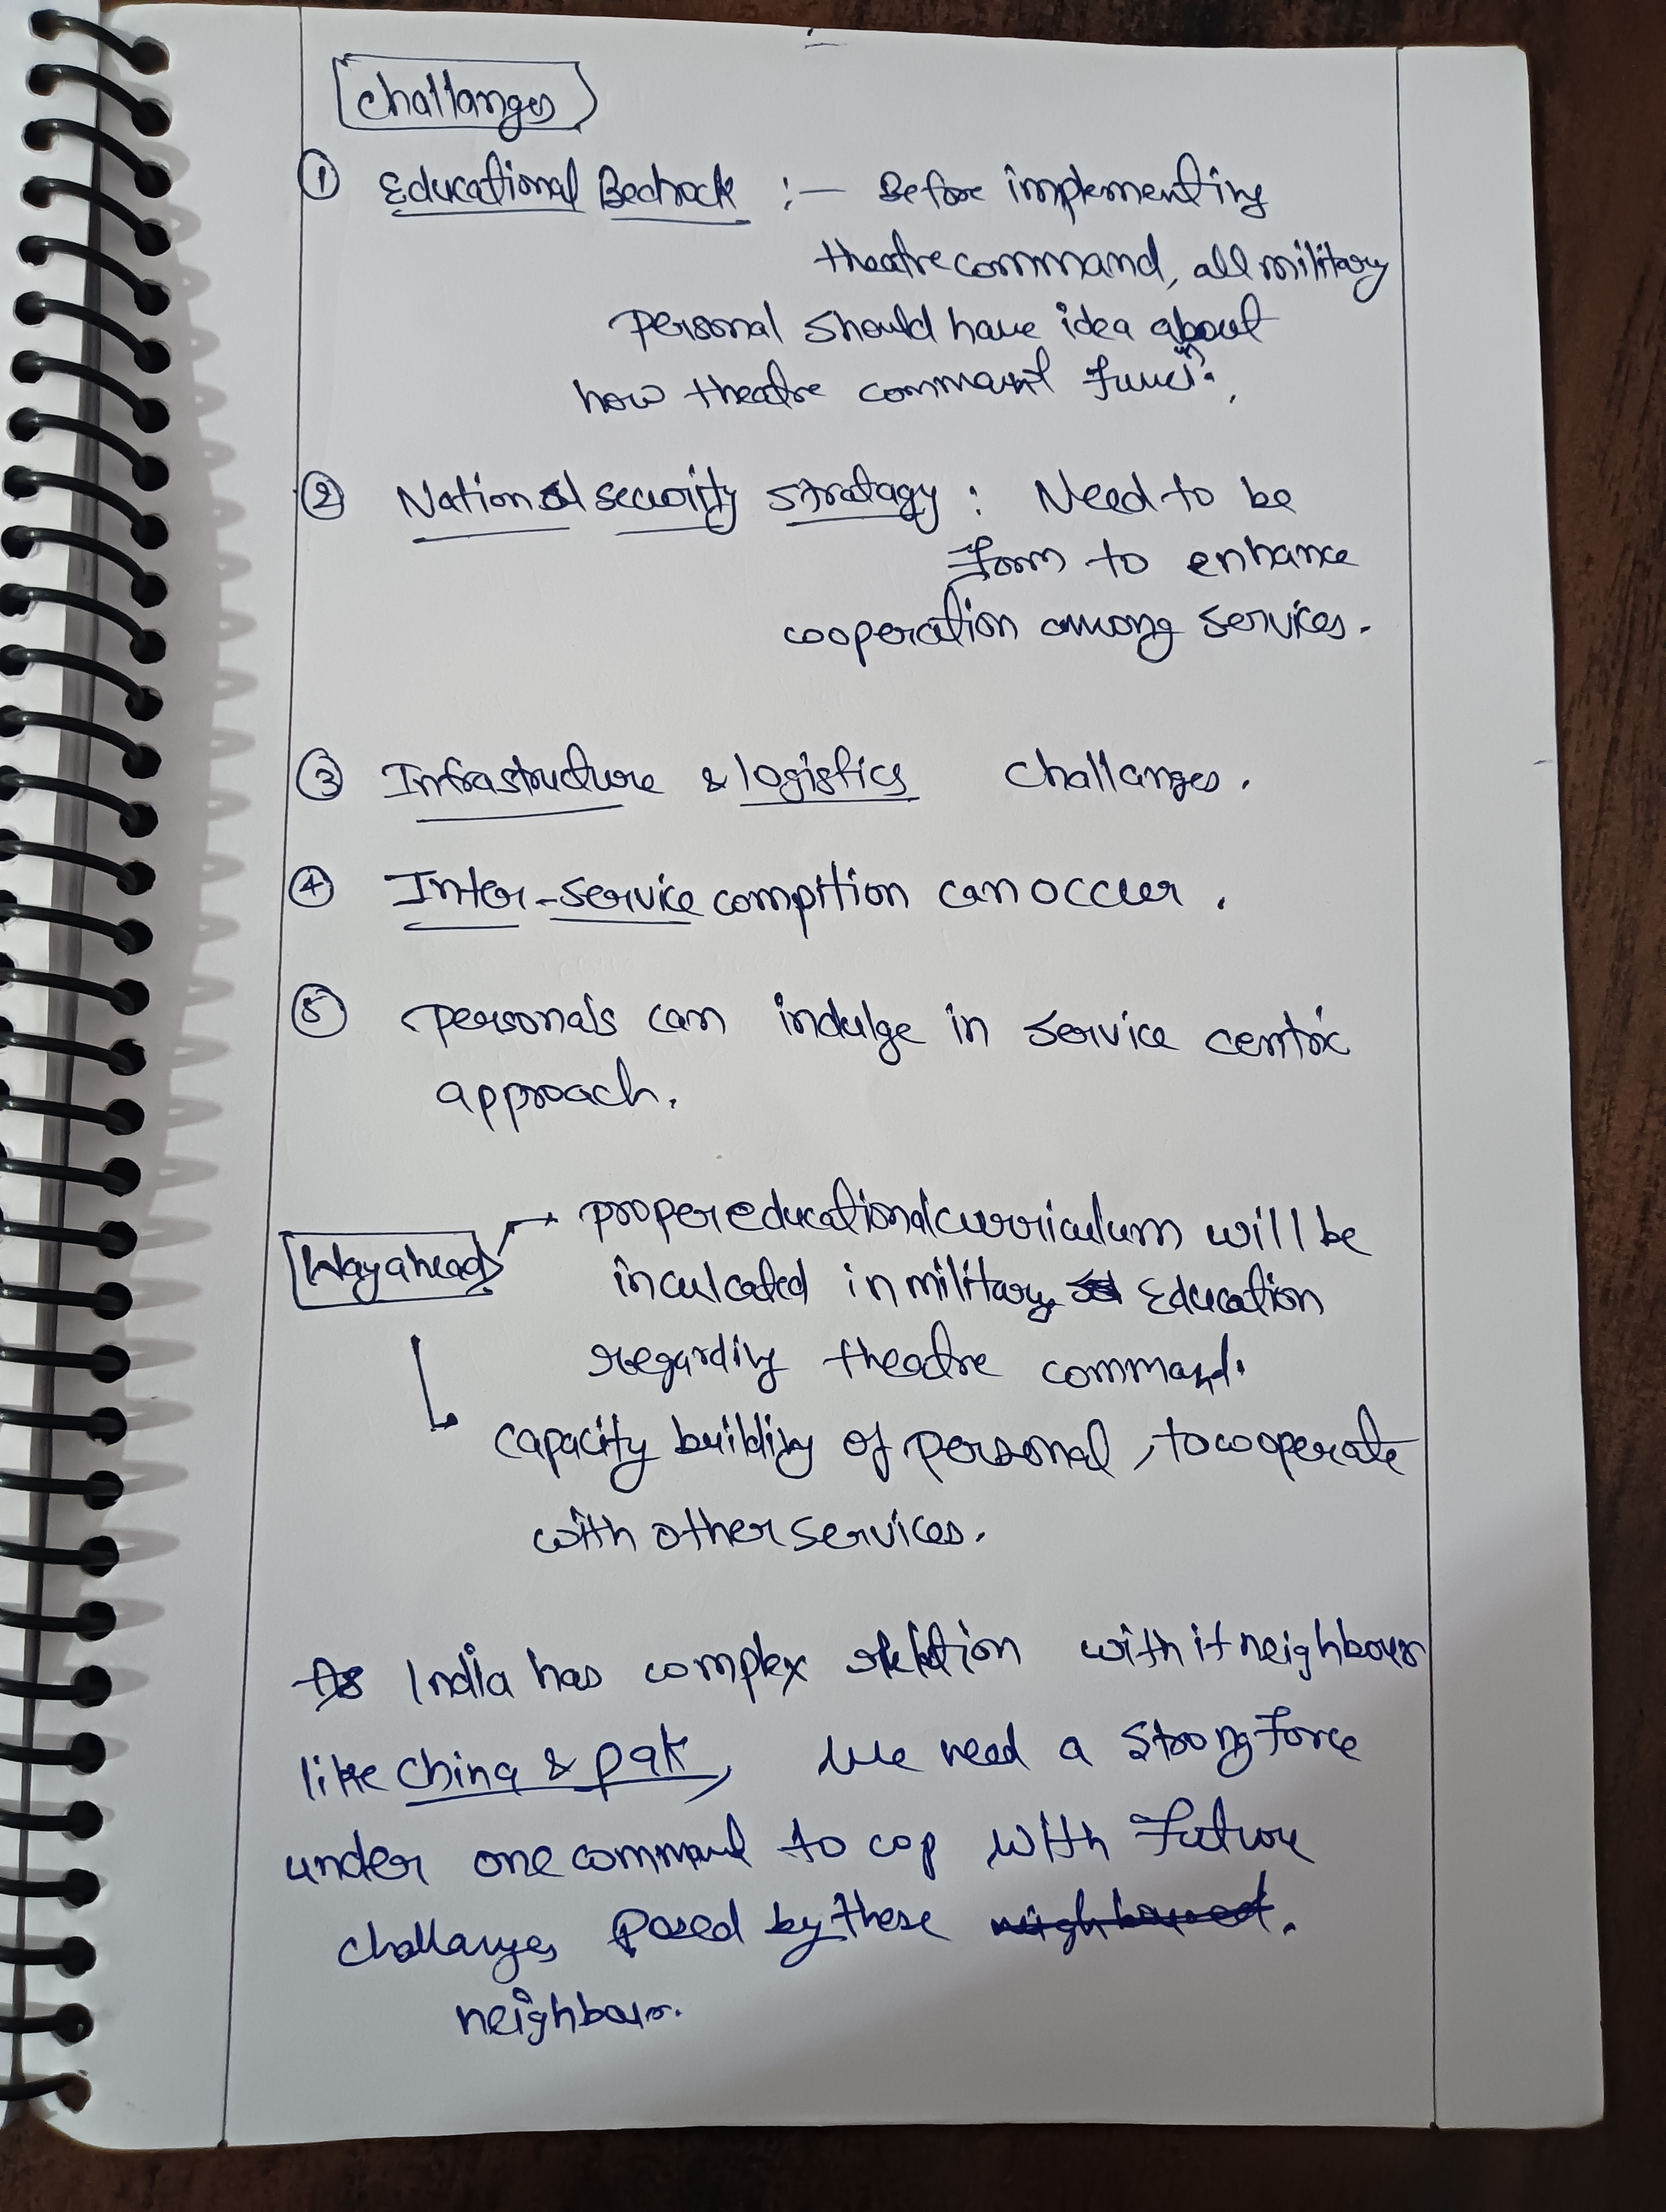 Challanges
① Educational Bedrock :- Before implementing
theatre command, all military
personal should have idea about
how theatre command funcⁿ.
② National security stratagy : Need to be
form to enhance
cooperation among services.
③ Infrastructure & logistics challanges.
④ Inter-service compition can occur.
⑤ personals can indulge in service centric
approach.
Way ahead → proper educational curriculum will be
inculcated in military Education
regarding theatre command.
capacity building of personal, to cooperate
with other services.
As India has complex relation with it neighbour
like China & Pak, we need a strong force
under one command to cop with future
challanges posed by these
neighbour.